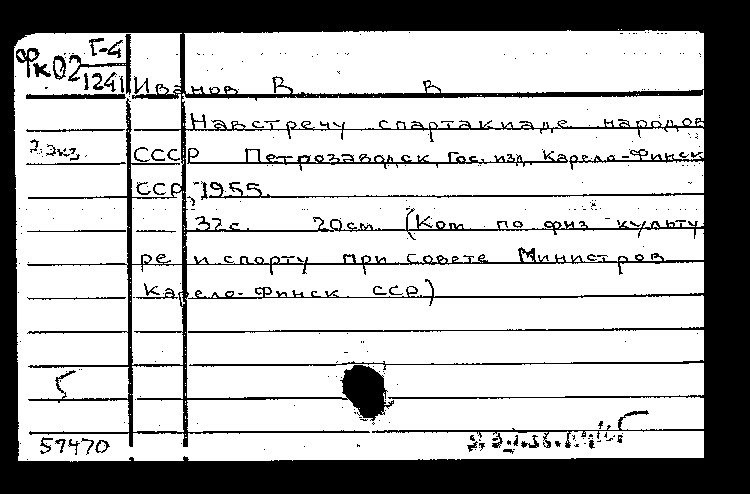 Фк02 Г-4
1241
Иванов В. В
Навстречу спартакиаде народов
2 экз.
СССР Петрозаводск, Гос. изд. Карело-Финск
ССР, 1955.
32с. 20см (Ком по физ культу
ре и спорту при Совете Министров
Карело-Финск. ССР)
5
57470